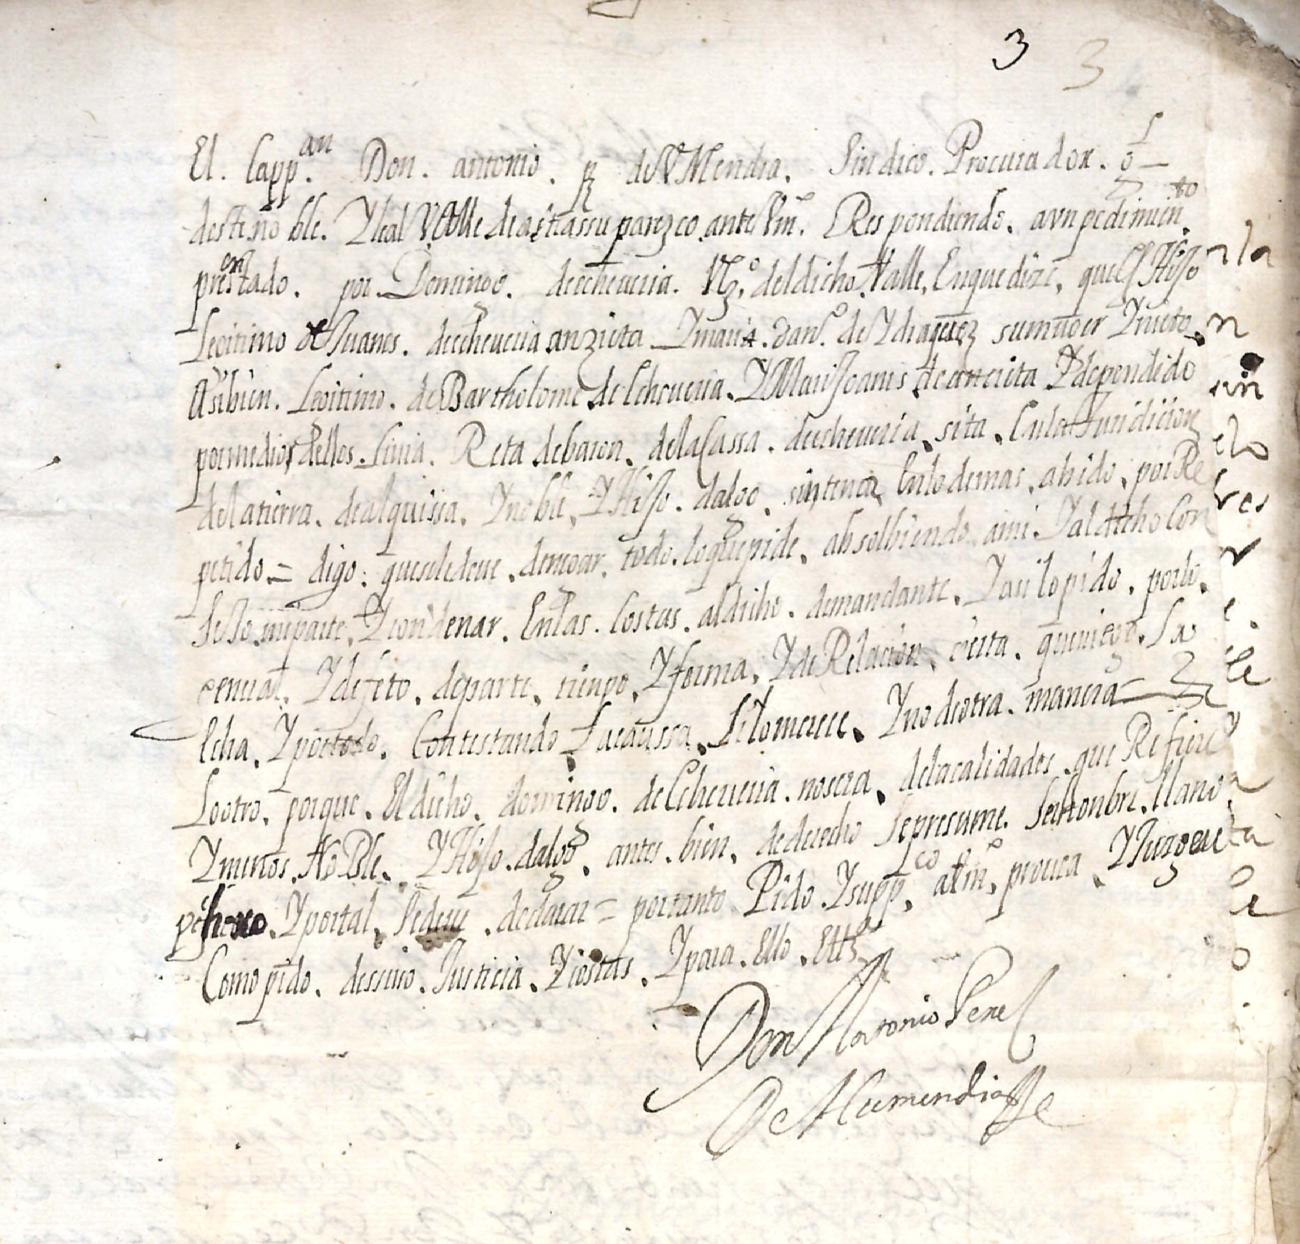 3 3
El. Capp.an Don. antonio. pz de VMendia. Sindico. Procurador. gl
deste noble. Y leal Valle de astiassu parezco. ante Vm. Respondiendo. a vn pedimien.to
presentado. por Domingo. de echeueria. Vz.o del dicho. Valle, En que dize, que es Hijo
Lexitimo de Juanes. de echeueria anzieta Y maria. dan.s de Ydiaquez su muger Y nieto.
Asi bien. Lexitimo. de Bartholome de Echeueria. Y Mari Joanis de ancieta Y dependido
por medio dellos. Linia. Reta de baron. de la Cassa. de echeueria, sita, En la Juridicion
de la tierra. de alquissa, Y noble, Y Hijo. dalgo, sin tener, En lo demas, a bido, por Re
petido = digo: que se le deue, denegar, todo. lo que pide, absolbiendo ami Y al dicho Con
sejo mi parte, Y condenar. En las. Costas. al dicho. demandante, Y asi lo pido, por lo.
general, Y defeto, de parte, tienpo, Y forma, Y de Relacion, cierta. que niego, La
Echa, Y por todo. Contestando La caussa, Si lo merece, Y no de otra. manera =
Lo otro, porque. El dicho. domingo. de Echeueria. no sera, de la calidades, que Refiere
Y menos. NoBle, Y Hijo. dalgo, antes. bien, de derecho se presume. ser honbre. llano
pechero, Y por tal, se deue, declarar = por tanto Pido Y supp.co a Vm, prouea, Y Juzgue
Como pido. desuio. Justicia, Y costas, Y para. Ello, Ett.a
Don Antonio Perez
De Vmendia